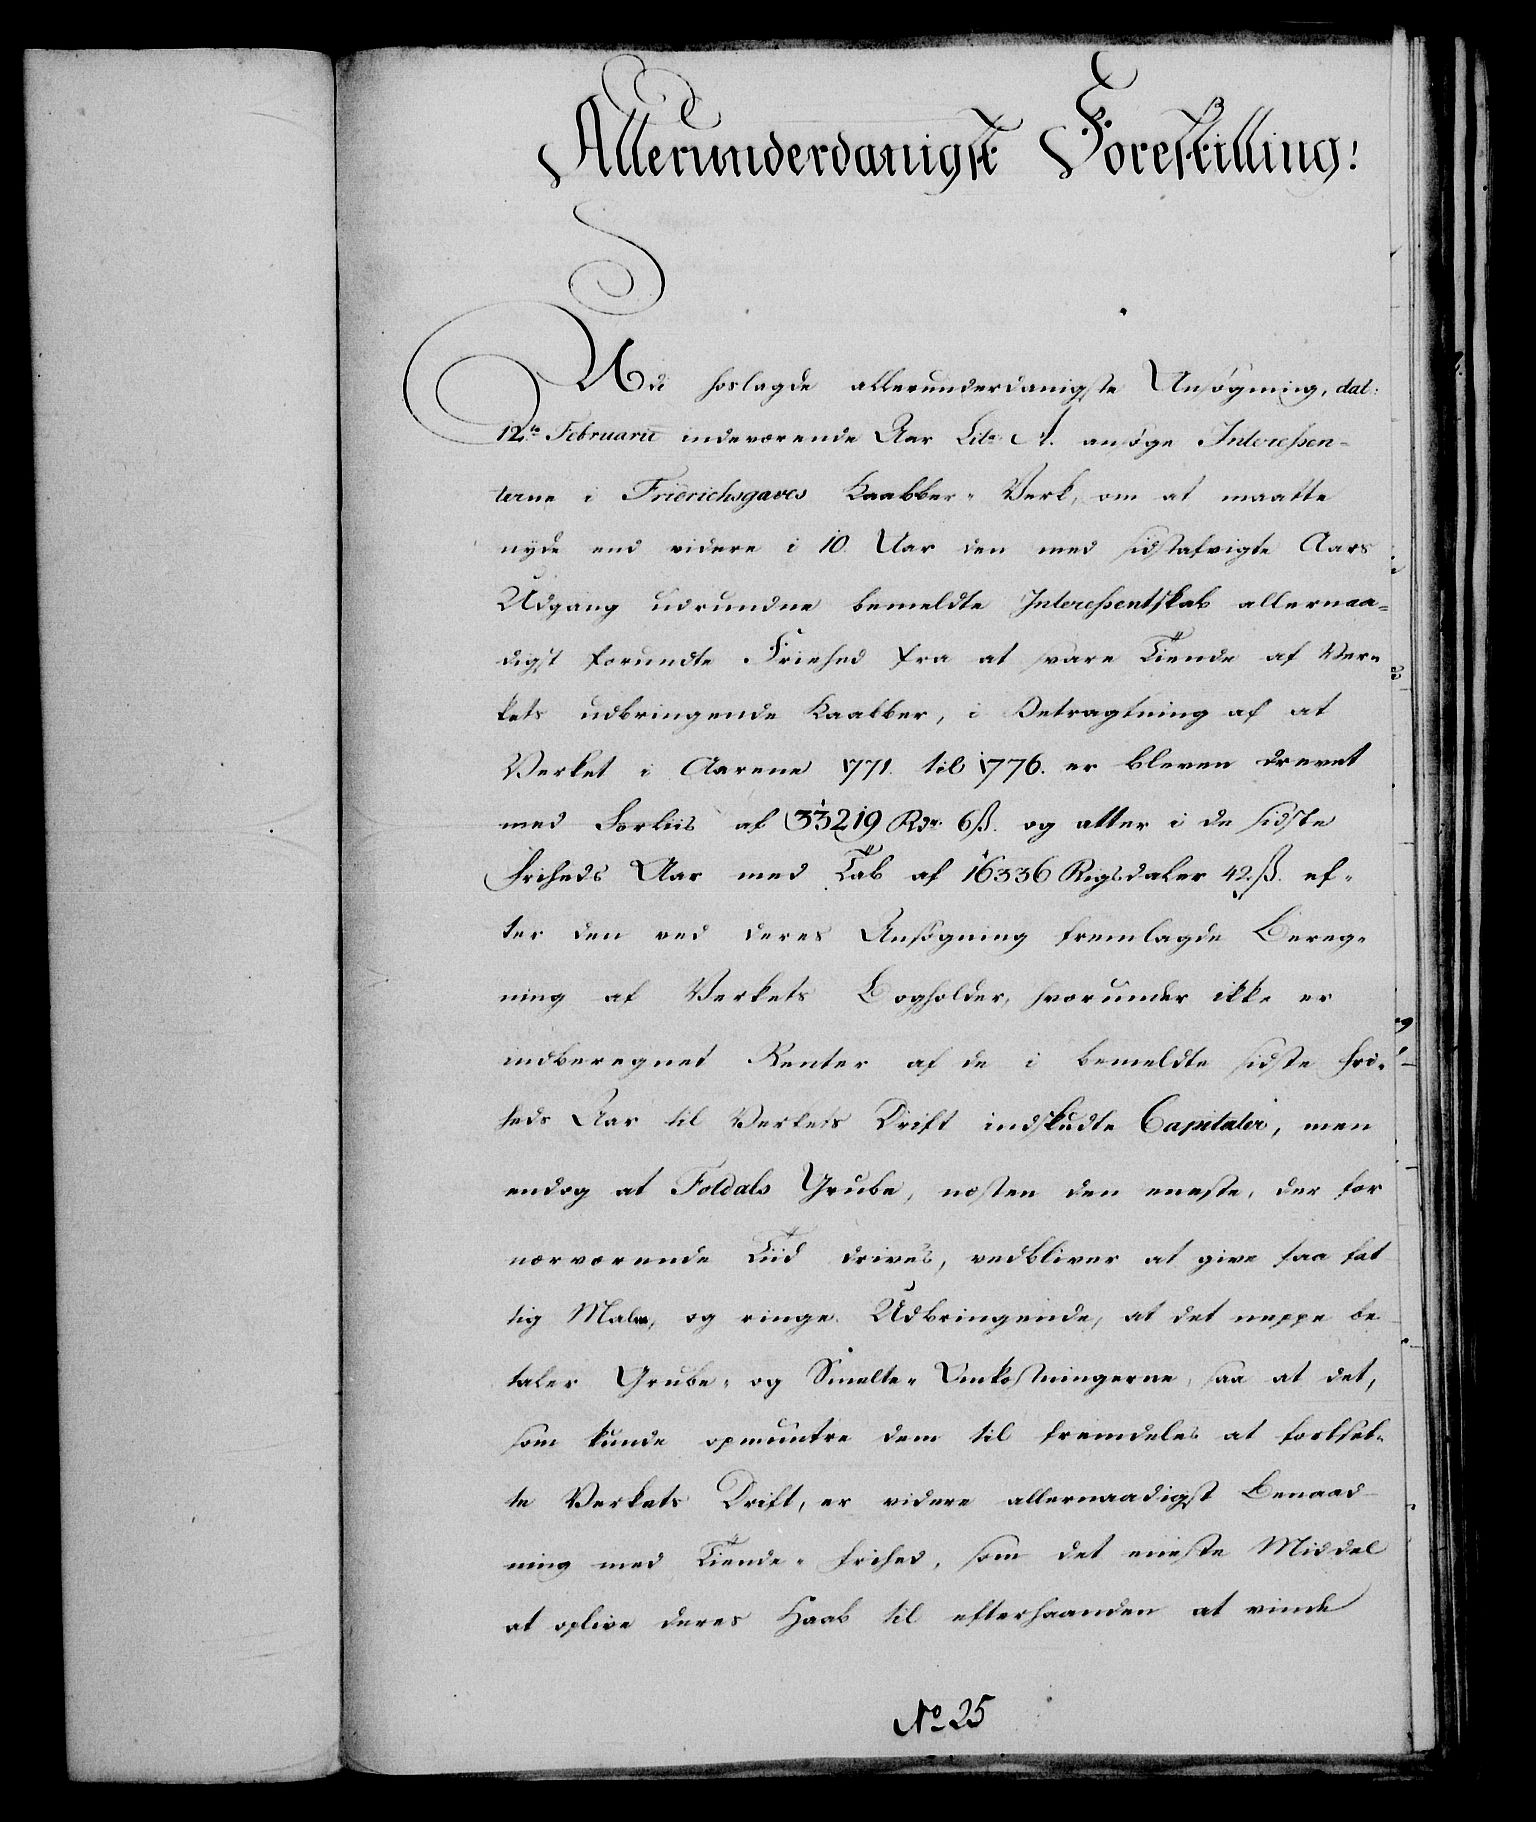 Allerunderdanigst Forestilling!
Ved hoslagde allerunderdanigste Ansøgning, dat:
12te Februarii indeværende Aar Litr: A. ansøge Interessen-
terne i Friderichsgaves Kaabber-Verk, om at maatte
nyde end videre i 10 Aar den med sidstafvigte Aars
Udgang udrundne bemeldte Interessentskab allernaa-
digst forundte Friehed fra at svare Tiende af Ver-
kets udbringende Kaabber, i Betragtning af at
Verket i Aarene 1771. til 1776. er bleven drevet
med Forliis af 33219 Rdr. 6 ß. og atter i de sidste
Friheds Aar med Tab af 16336 Rigsdaler 42. ß. ef-
ter den ved deres Ansøgning fremlagde Bereg-
ning af Verkets Bogholder, hvorunder ikke er
indberegnet Renter af de i bemeldte sidste Fri-
heds Aar til Verkets Drift indskudte Capitaler, men
endog at Foldals Grube, næsten den eneste, der for
nærværende Tiid drives, vedbliver at give saa fat
tig Malm, og ringe Udbringende, at det neppe be
taler Grube- og Smelte-Omkostningerne, saa at det,
som kunde opmuntre dem til fremdeles at fortsæt-
te Verkets Drift, er videre allernaadigst Benaad-
ning med Tiende-Frihed, som det eneste Middel
at oplive deres Haab til efterhaanden at vinde
No 25